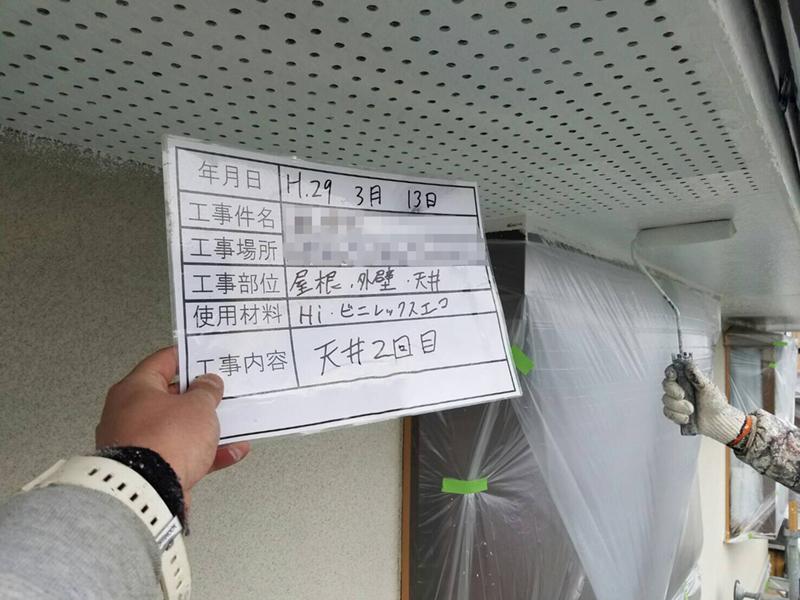 年月日 H.29 3月 13日
工事件名
工事場所
工事部位 屋根・外壁・天井
使用材料 Hi・ビニレックスエコ
工事内容 天井2回目